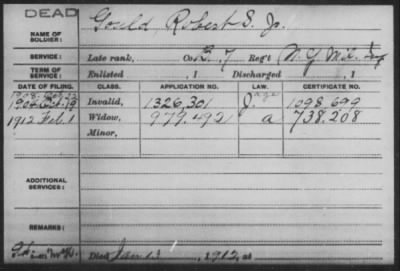 DEAD
NAME OF SOLDIER: Gould Robert S. Jr.
SERVICE: Late rank, Co. E. 7 Reg't N.Y. Mil. Inf
TERM OF SERVICE: Enlisted , 1 Discharged , 1
DATE OF FILING. CLASS. APPLICATION NO. LAW. CERTIFICATE NO.
Invalid, 1326,301 1098,699
1912 Feb. 1 Widow, 979.492 a 738,208
Minor,
ADDITIONAL SERVICES:
REMARKS:
Died Jan 13 , 1912, at